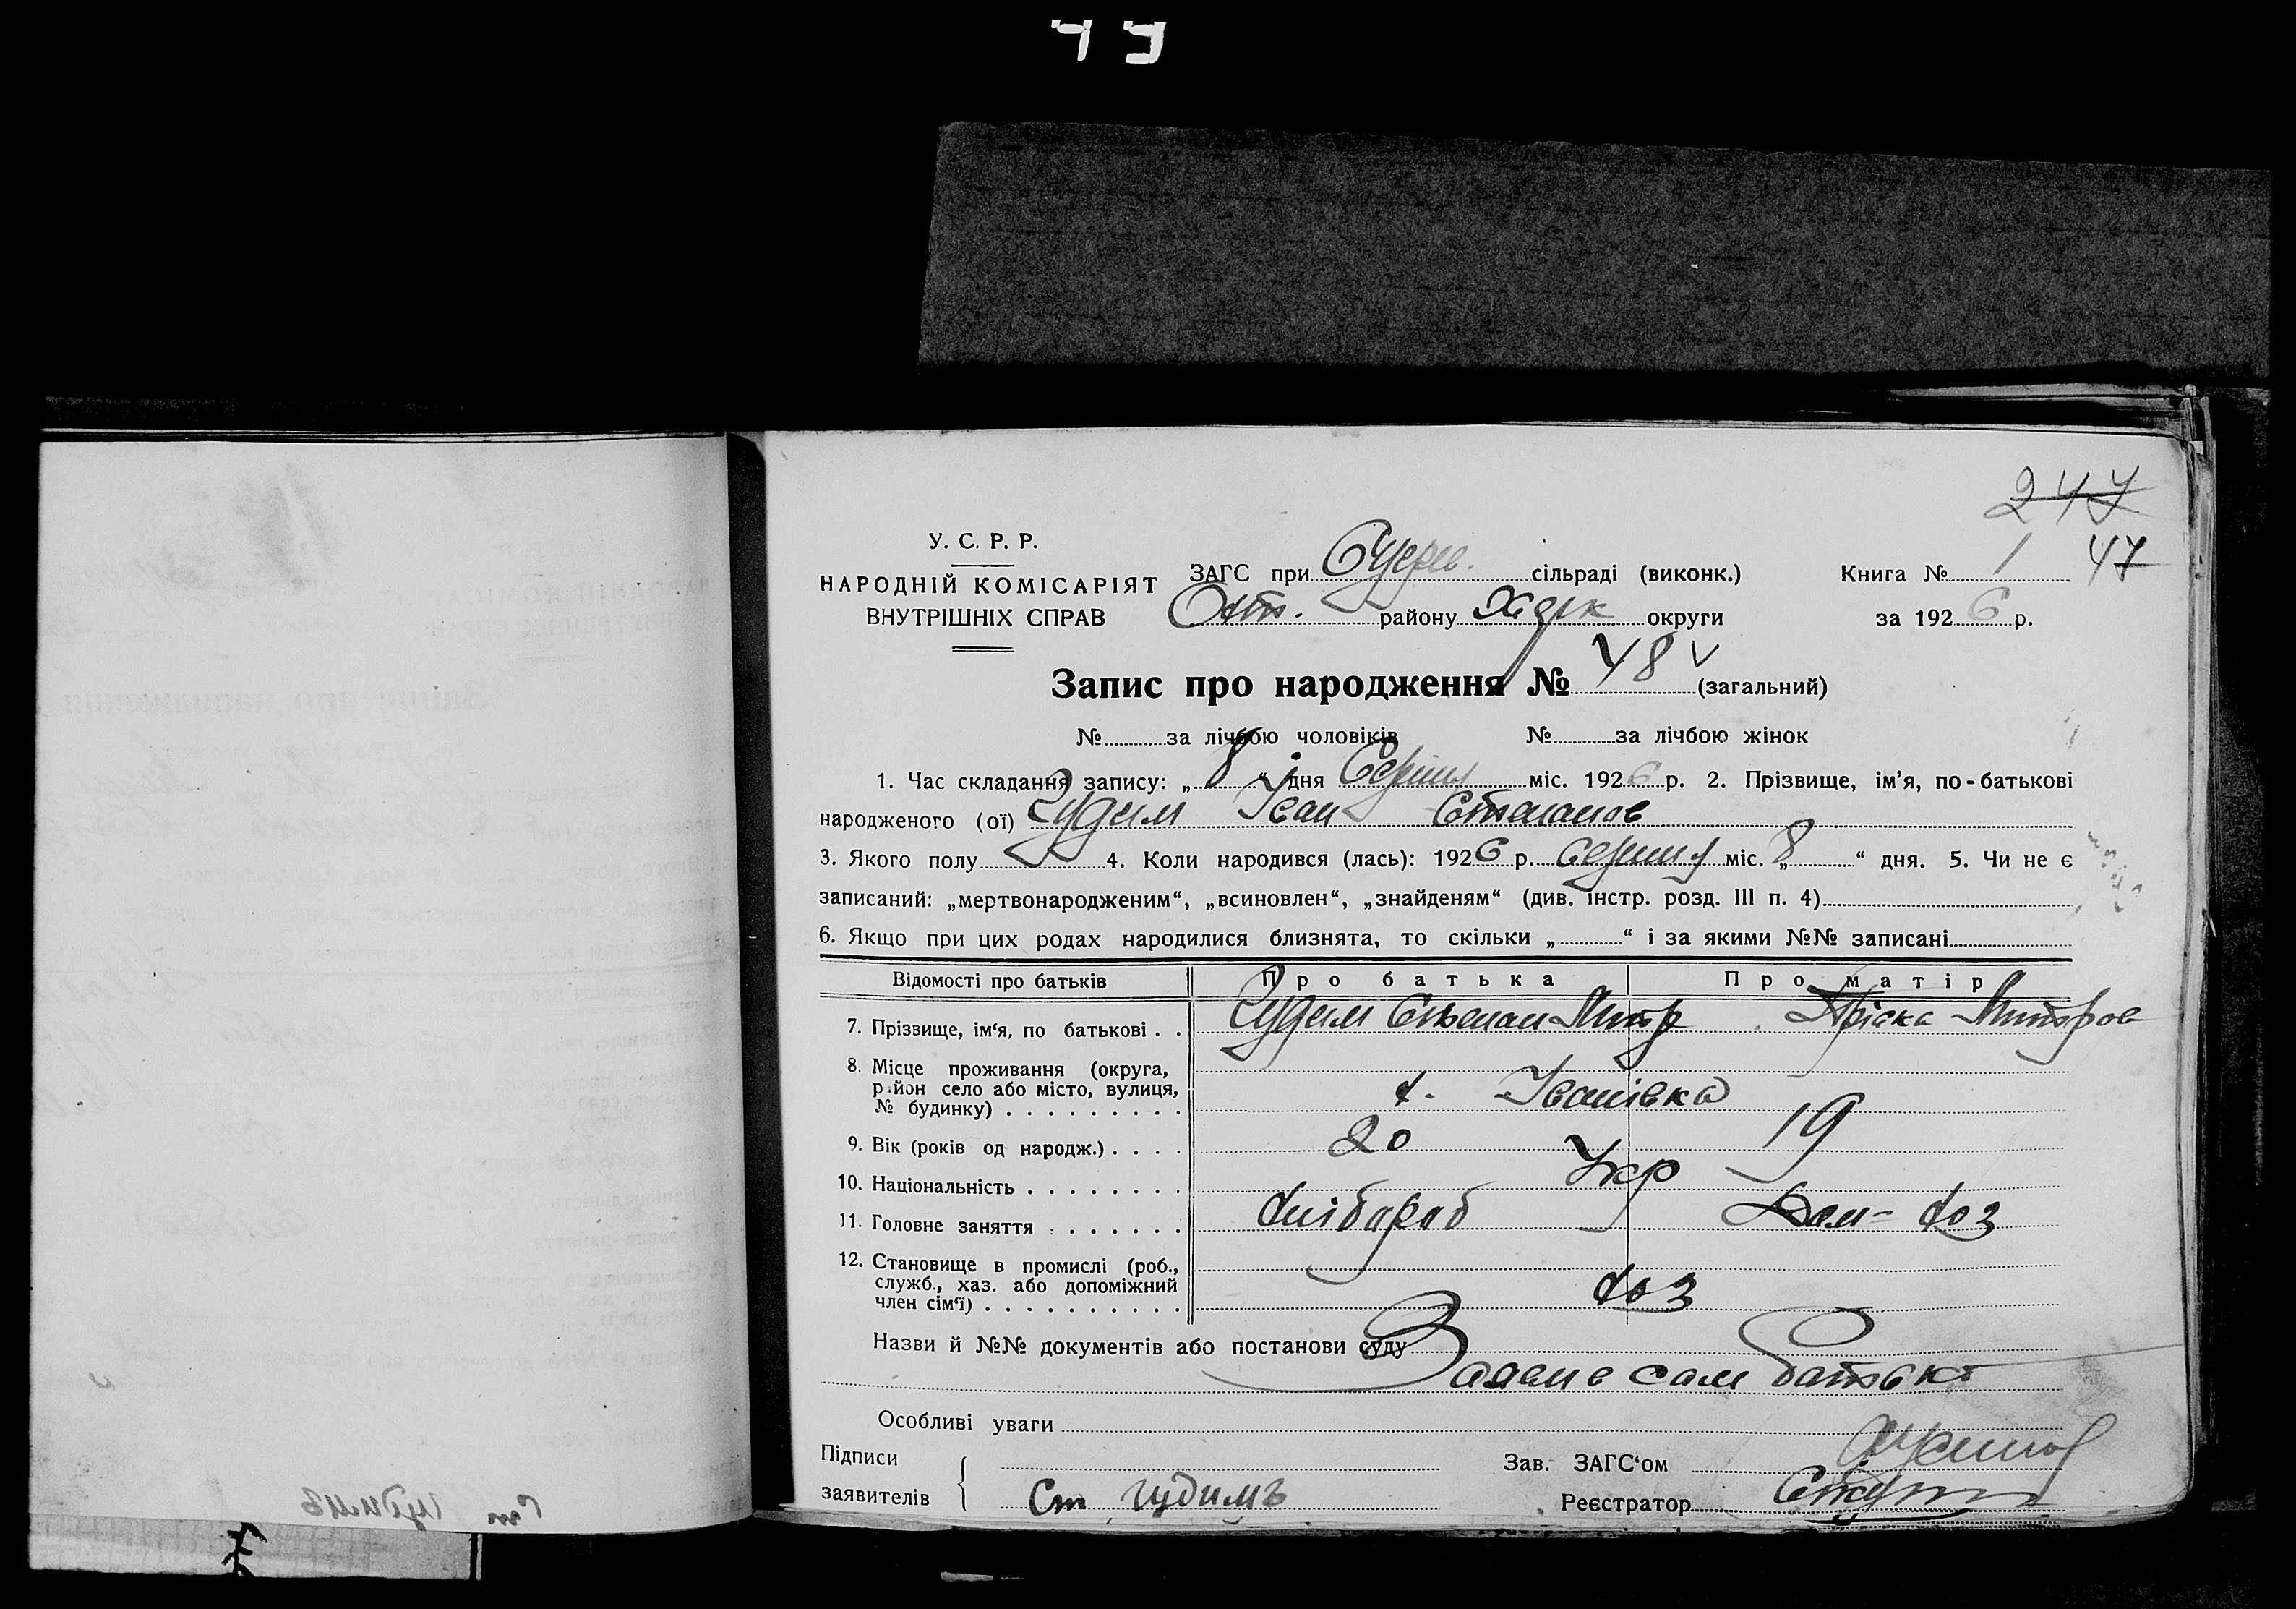 247
У. С. Р. Р.
НАРОДНІЙ КОМІСАРІЯТ
ВНУТРІШНІХ СПРАВ
ЗАГС при сільраді (виконк.)
Книга № 1 47
району Харк округи
за 1926 р.
Запис про народження № 48 (загальний)
№ за лічбою чоловіків № за лічбою жінок
1. Час складання запису: „ 8 “ дня Серпня міс. 1926 р. 2. Прізвище, ім’я, по-батькові
народженого (ої) Гудим Іван Степанов
3. Якого полу 4. Коли народився (лась): 1926 р. серпня міс. „ 8 “ дня. 5. Чи не є
записаний: „мертвонародженим“, „всиновлен“, „знайденям“ (див. інстр. розд. III п. 4)
6. Якщо при цих родах народилися близнята, то скільки „ “ і за якими №№ записані
Відомості про батьків Про батька Про матір
7. Прізвище, ім‘я, по батькові . . Гудим Степан Митр Пріська Митров
8. Місце проживання (округа,
район село або місто, вулиця,
№ будинку) . . . . . . . . . х. Іванівка
9. Вік (років од народж.) . . . . 20 19
10. Національність . . . . . . . . Укр
11. Головне заняття . . . . . . . Хлібороб Дом-хоз
12. Становище в промислі (роб.,
служб., хаз. або допоміжний
член сім‘ї) . . . . . . . . . . хоз
Назви й №№ документів або постанови суду
Заявив сам батько
Особливі уваги
Підписи
заявителів Ст гудимъ
Зав. ЗАГС‘ом
Реєстратор